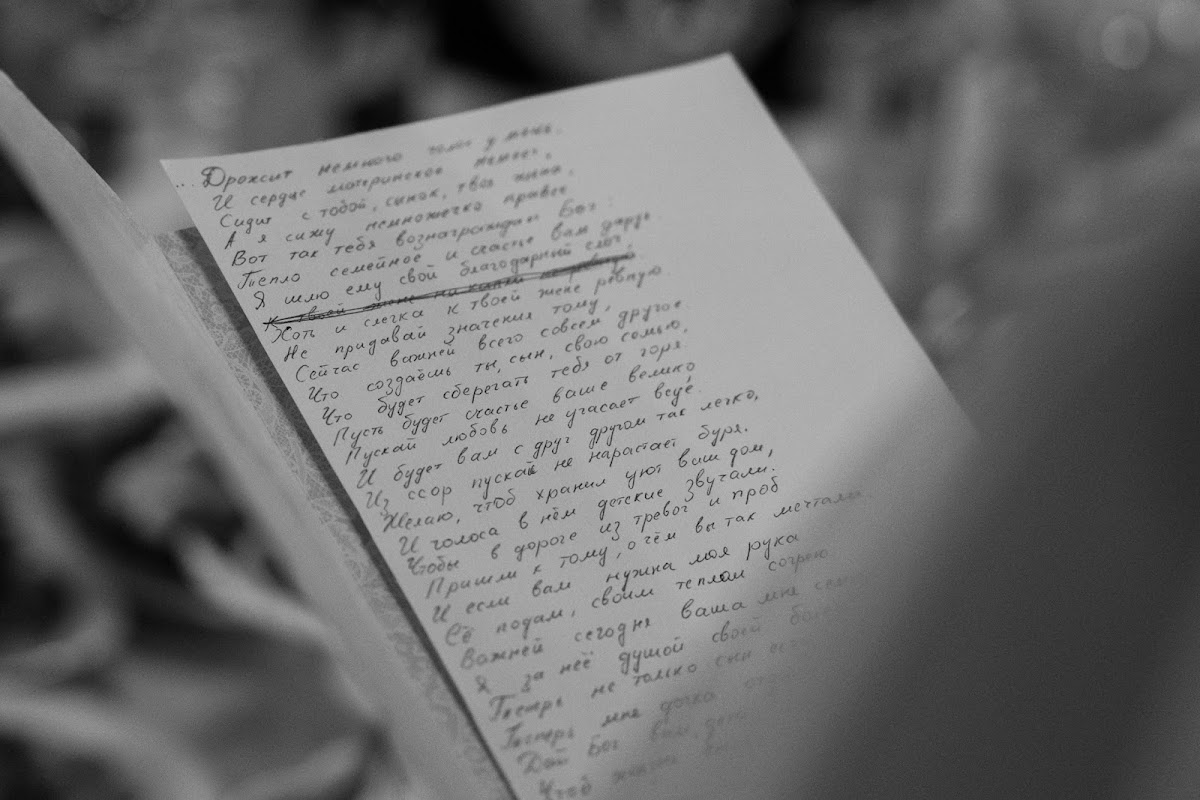 ...Дрожит немного голос у меня.
И сердце материнское немеет,
Сидит с тобой, сынок, твоя жена,
А я сижу немножечко правее
Вот так тебя вознаграждал Бог:
Тепло семейное и счастье вам даруя.
Я шлю ему свой благодарный слог,
К твоей жене ни капли не ревную
Хоть и слегка к твоей жене ревную.
Не придавай значения тому,
Сейчас важней всего совсем другое.
Что создаёшь ты, сын, свою семью,
Что будет сберегать тебя от горя.
Пусть будет счастье ваше велико,
Пускай любовь не угасает
И будет вам с друг другом так легко,
Из ссор пускай не нарастает буря.
Желаю, чтоб хранил уют ваш дом,
И голоса в нём детские звучали.
Чтобы в дороге из тревог и проб
Пришли к тому, о чём вы так мечтали.
И если вам нужна моя рука
Её подам, своим теплом согрею
Важней сегодня ваша мне
Я за неё душой своей
Теперь не только сын
Теперь мне дочка
Дай Бог вам,
Чтоб